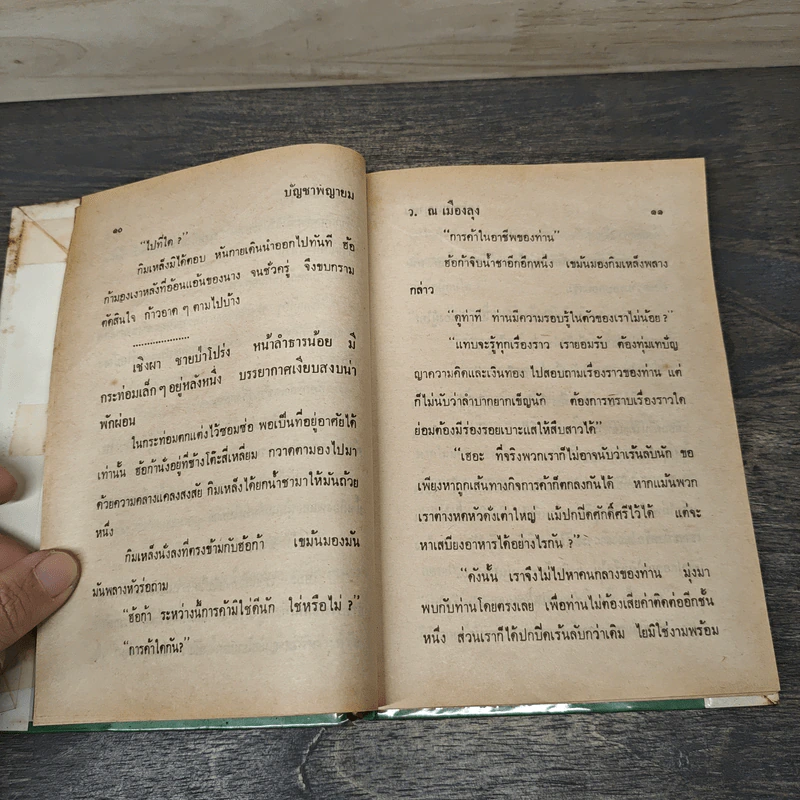 ๑๐
บัญชาพญายม
"ไปที่ใด ?"
กิมเหล็งมิได้ตอบ หันกายเดินนำออกไปทันที ฮ้อ
ก้ามองเงาหลังที่อ้อนแอ้นของนาง จนชั่วครู่ จึงขบกราม
ตัดสินใจ ก้าวอาด ๆ ตามไปบ้าง
....................
เชิงผา ชายป่าโปร่ง หน้าลำธารน้อย มี
กระท่อมเล็ก ๆ อยู่หลังหนึ่ง บรรยากาศเงียบสงบน่า
พักผ่อน
ในกระท่อมตกแต่งไว้ซอมซ่อ พอเป็นที่อยู่อาศัยได้
เท่านั้น ฮ้อก้านั่งอยู่ที่ข้างโต๊ะสี่เหลี่ยม กวาดตามองไปมา
ด้วยความคลางแคลงสงสัย กิมเหล็งได้ยกน้ำชามาให้มันถ้วย
หนึ่ง
กิมเหล็งนั่งลงที่ตรงข้ามกับฮ้อก้า เขม้นมองมัน
มันพลางหัวร่อถาม
"ฮ้อก้า ระหว่างนี้การค้ามิใช่ดีนัก ใช่หรือไม่ ?"
"การค้าใดกัน?"
ว. ณ เมืองลุง
๑๑
"การค้าในอาชีพของท่าน"
ฮ้อก้าจิบน้ำชาอีกอึกหนึ่ง เขม้นมองกิมเหล็งพลาง
กล่าว
"ดูท่าที ท่านมีความรอบรู้ในตัวของเราไม่น้อย ?"
"แทบจะรู้ทุกเรื่องราว เรายอมรับ ต้องทุ่มเทปัญ
ญาความคิดและเงินทอง ไปสอบถามเรื่องราวของท่าน แต่
ก็ไม่นับว่าลำบากยากเข็ญนัก ต้องการทราบเรื่องราวใด
ย่อมต้องมีร่องรอยเบาะแสให้สืบสาวได้"
"เฮอะ ที่จริงพวกเราก็ไม่อาจนับว่าเร้นลับนัก ขอ
เพียงหาถูกเส้นทางกิจการค้าก็ตกลงกันได้ หากแม้นพวก
เราต่างหดหัวดั่งเต่าใหญ่ แม้ปกปิดศักดิ์ศรีไว้ได้ แต่จะ
หาเสบียงอาหารได้อย่างไรกัน ?"
"ดังนั้น เราจึงไม่ไปหาคนกลางของท่าน มุ่งมา
พบกับท่านโดยตรงเลย เพื่อท่านไม่ต้องเสียค่าติดต่ออีกชั้น
หนึ่ง ส่วนเราก็ได้ปกปิดเร้นลับกว่าเดิม ไยมิใช่งามพร้อม